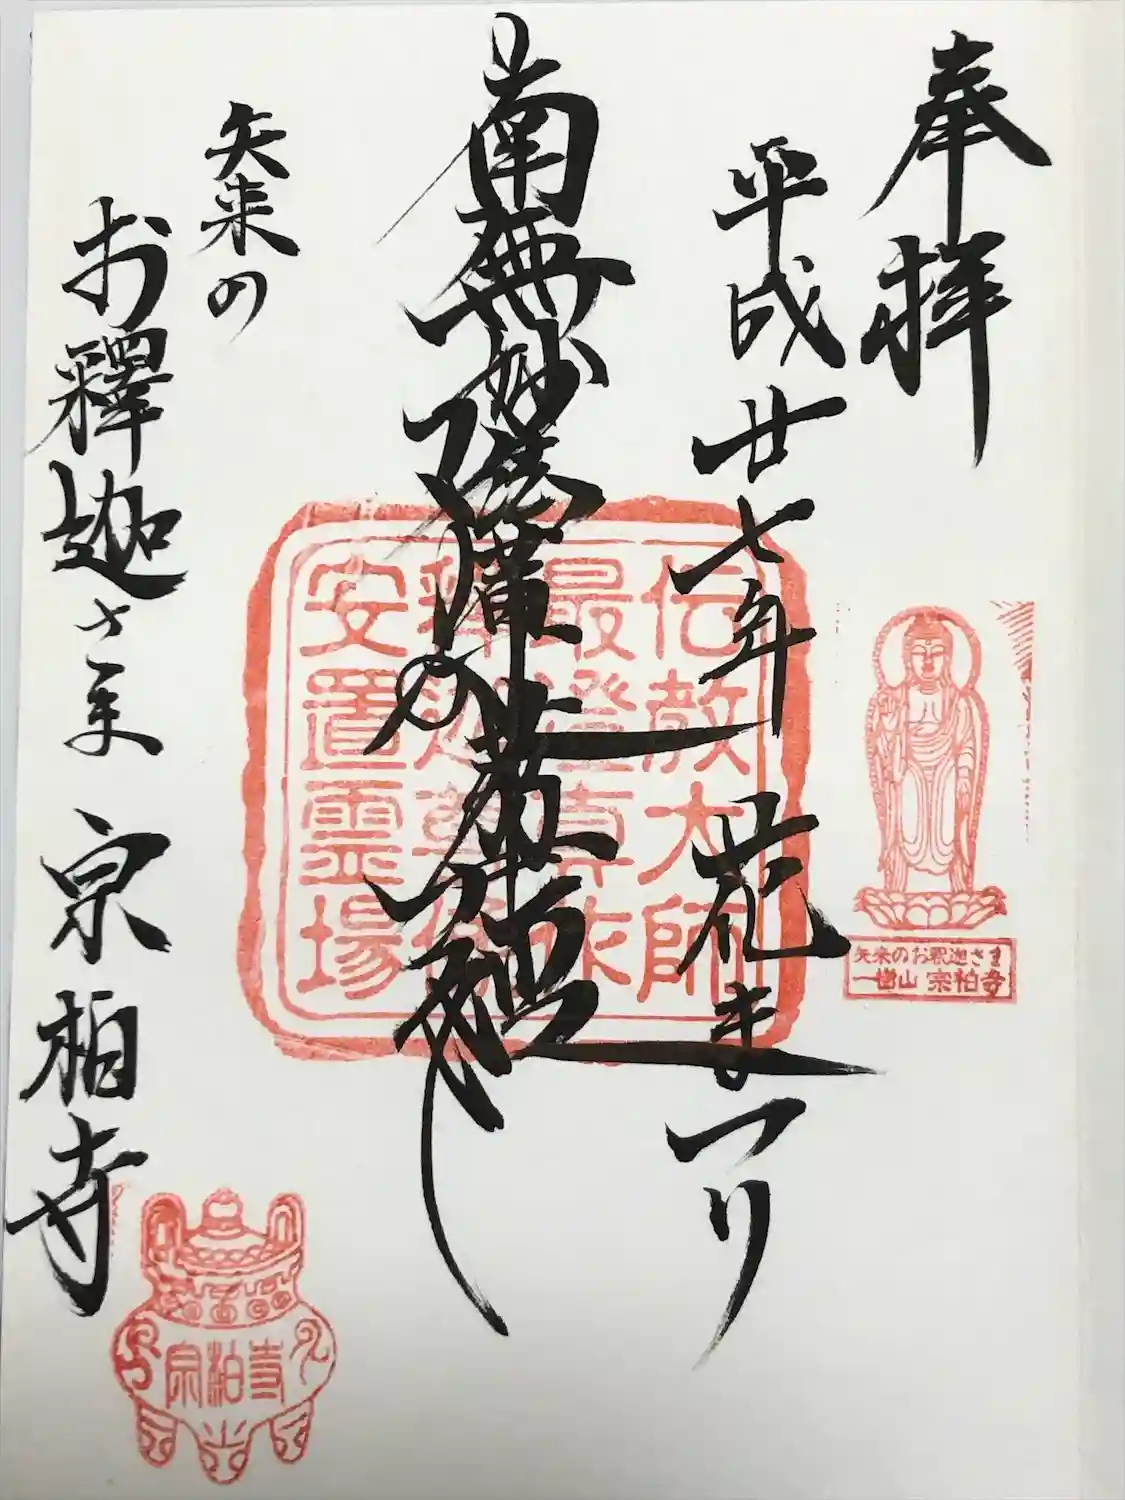 奉拝
平成廿七年 花まつり
南無妙法蓮華経
矢来の
お釋迦さま 宗柏寺
伝教大師
最澄 作
釋迦尊
安置霊場
矢来のお釈迦さま
一樹山 宗柏寺
宗柏寺